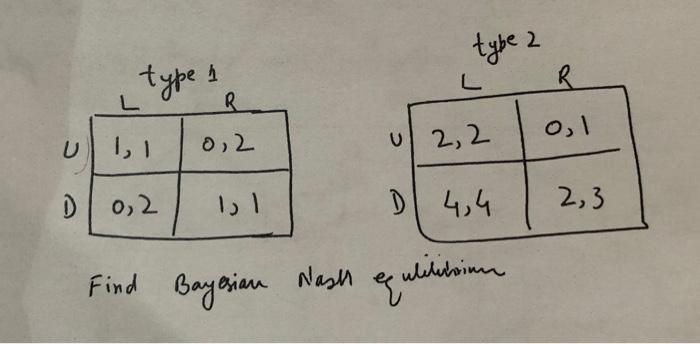 type 1
L R
U 1,1 0,2
D 0,2 1,1
type 2
L R
U 2,2 0,1
D 4,4 2,3
Find Bayesian Nash equlilibrium